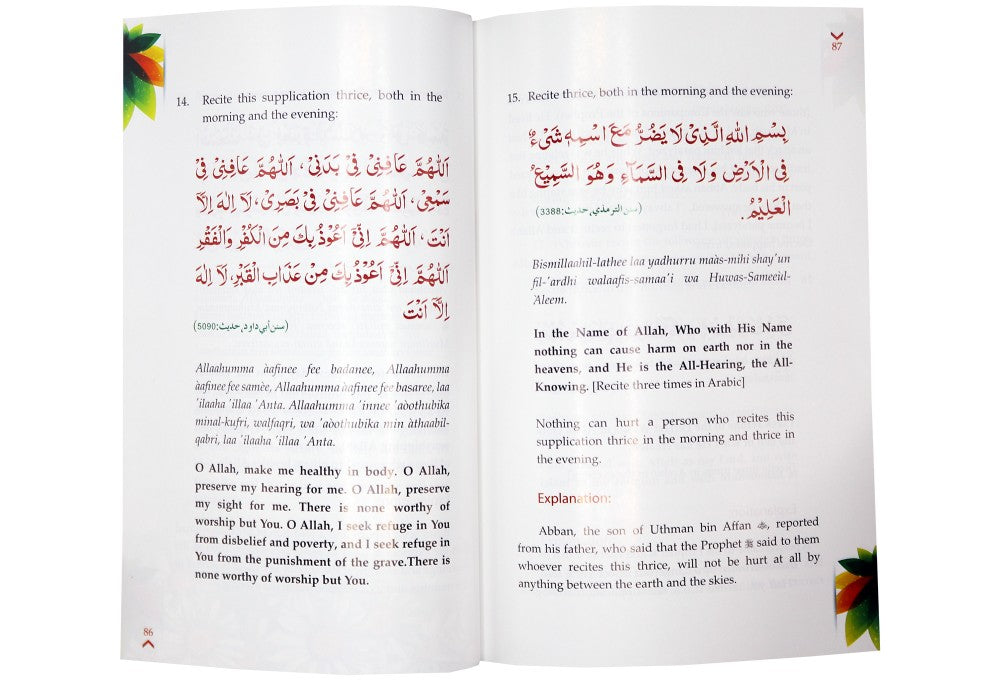 14. Recite this supplication thrice, both in the
morning and the evening:
اَللّٰهُمَّ عَافِنِيْ فِيْ بَدَنِيْ، اَللّٰهُمَّ عَافِنِيْ فِيْ
سَمْعِيْ، اَللّٰهُمَّ عَافِنِيْ فِيْ بَصَرِيْ، لَا اِلٰهَ اِلَّا
اَنْتَ، اَللّٰهُمَّ اِنِّيْ اَعُوْذُ بِكَ مِنَ الْكُفْرِ وَالْفَقْرِ
اَللّٰهُمَّ اِنِّيْ اَعُوْذُ بِكَ مِنْ عَذَابِ الْقَبْرِ، لَا اِلٰهَ
اِلَّا اَنْتَ
(سنن أبي داود، حديث:5090)
Allaahumma àafinee fee badanee, Allaahumma
àafinee fee samèe, Allaahumma àafinee fee basaree, laa
'ilaaha 'illaa 'Anta. Allaahumma 'innee 'aòothubika
minal-kufri, walfaqri, wa 'aòothubika min àthaabil-
qabri, laa 'ilaaha 'illaa 'Anta.
O Allah, make me healthy in body. O Allah,
preserve my hearing for me. O Allah, preserve
my sight for me. There is none worthy of
worship but You. O Allah, I seek refuge in You
from disbelief and poverty, and I seek refuge in
You from the punishment of the grave.There is
none worthy of worship but You.
86
87
15. Recite thrice, both in the morning and the evening:
بِسْمِ اللهِ الَّذِيْ لَا يَضُرُّ مَعَ اسْمِهٖ شَيْءٌ
فِي الْاَرْضِ وَلَا فِي السَّمَآءِ وَهُوَ السَّمِيْعُ
الْعَلِيْمُ. (سنن الترمذي، حديث:3388)
Bismillaahil-lathee laa yadhurru maàs-mihi shay'un
fil-'ardhi walaafis-samaa'i wa Huwas-Sameeùl-
'Aleem.
In the Name of Allah, Who with His Name
nothing can cause harm on earth nor in the
heavens, and He is the All-Hearing, the All-
Knowing. [Recite three times in Arabic]
Nothing can hurt a person who recites this
supplication thrice in the morning and thrice in
the evening.
Explanation:
Abban, the son of Uthman bin Affan ؓ, reported
from his father, who said that the Prophet ﷺ said to them
whoever recites this thrice, will not be hurt at all by
anything between the earth and the skies.